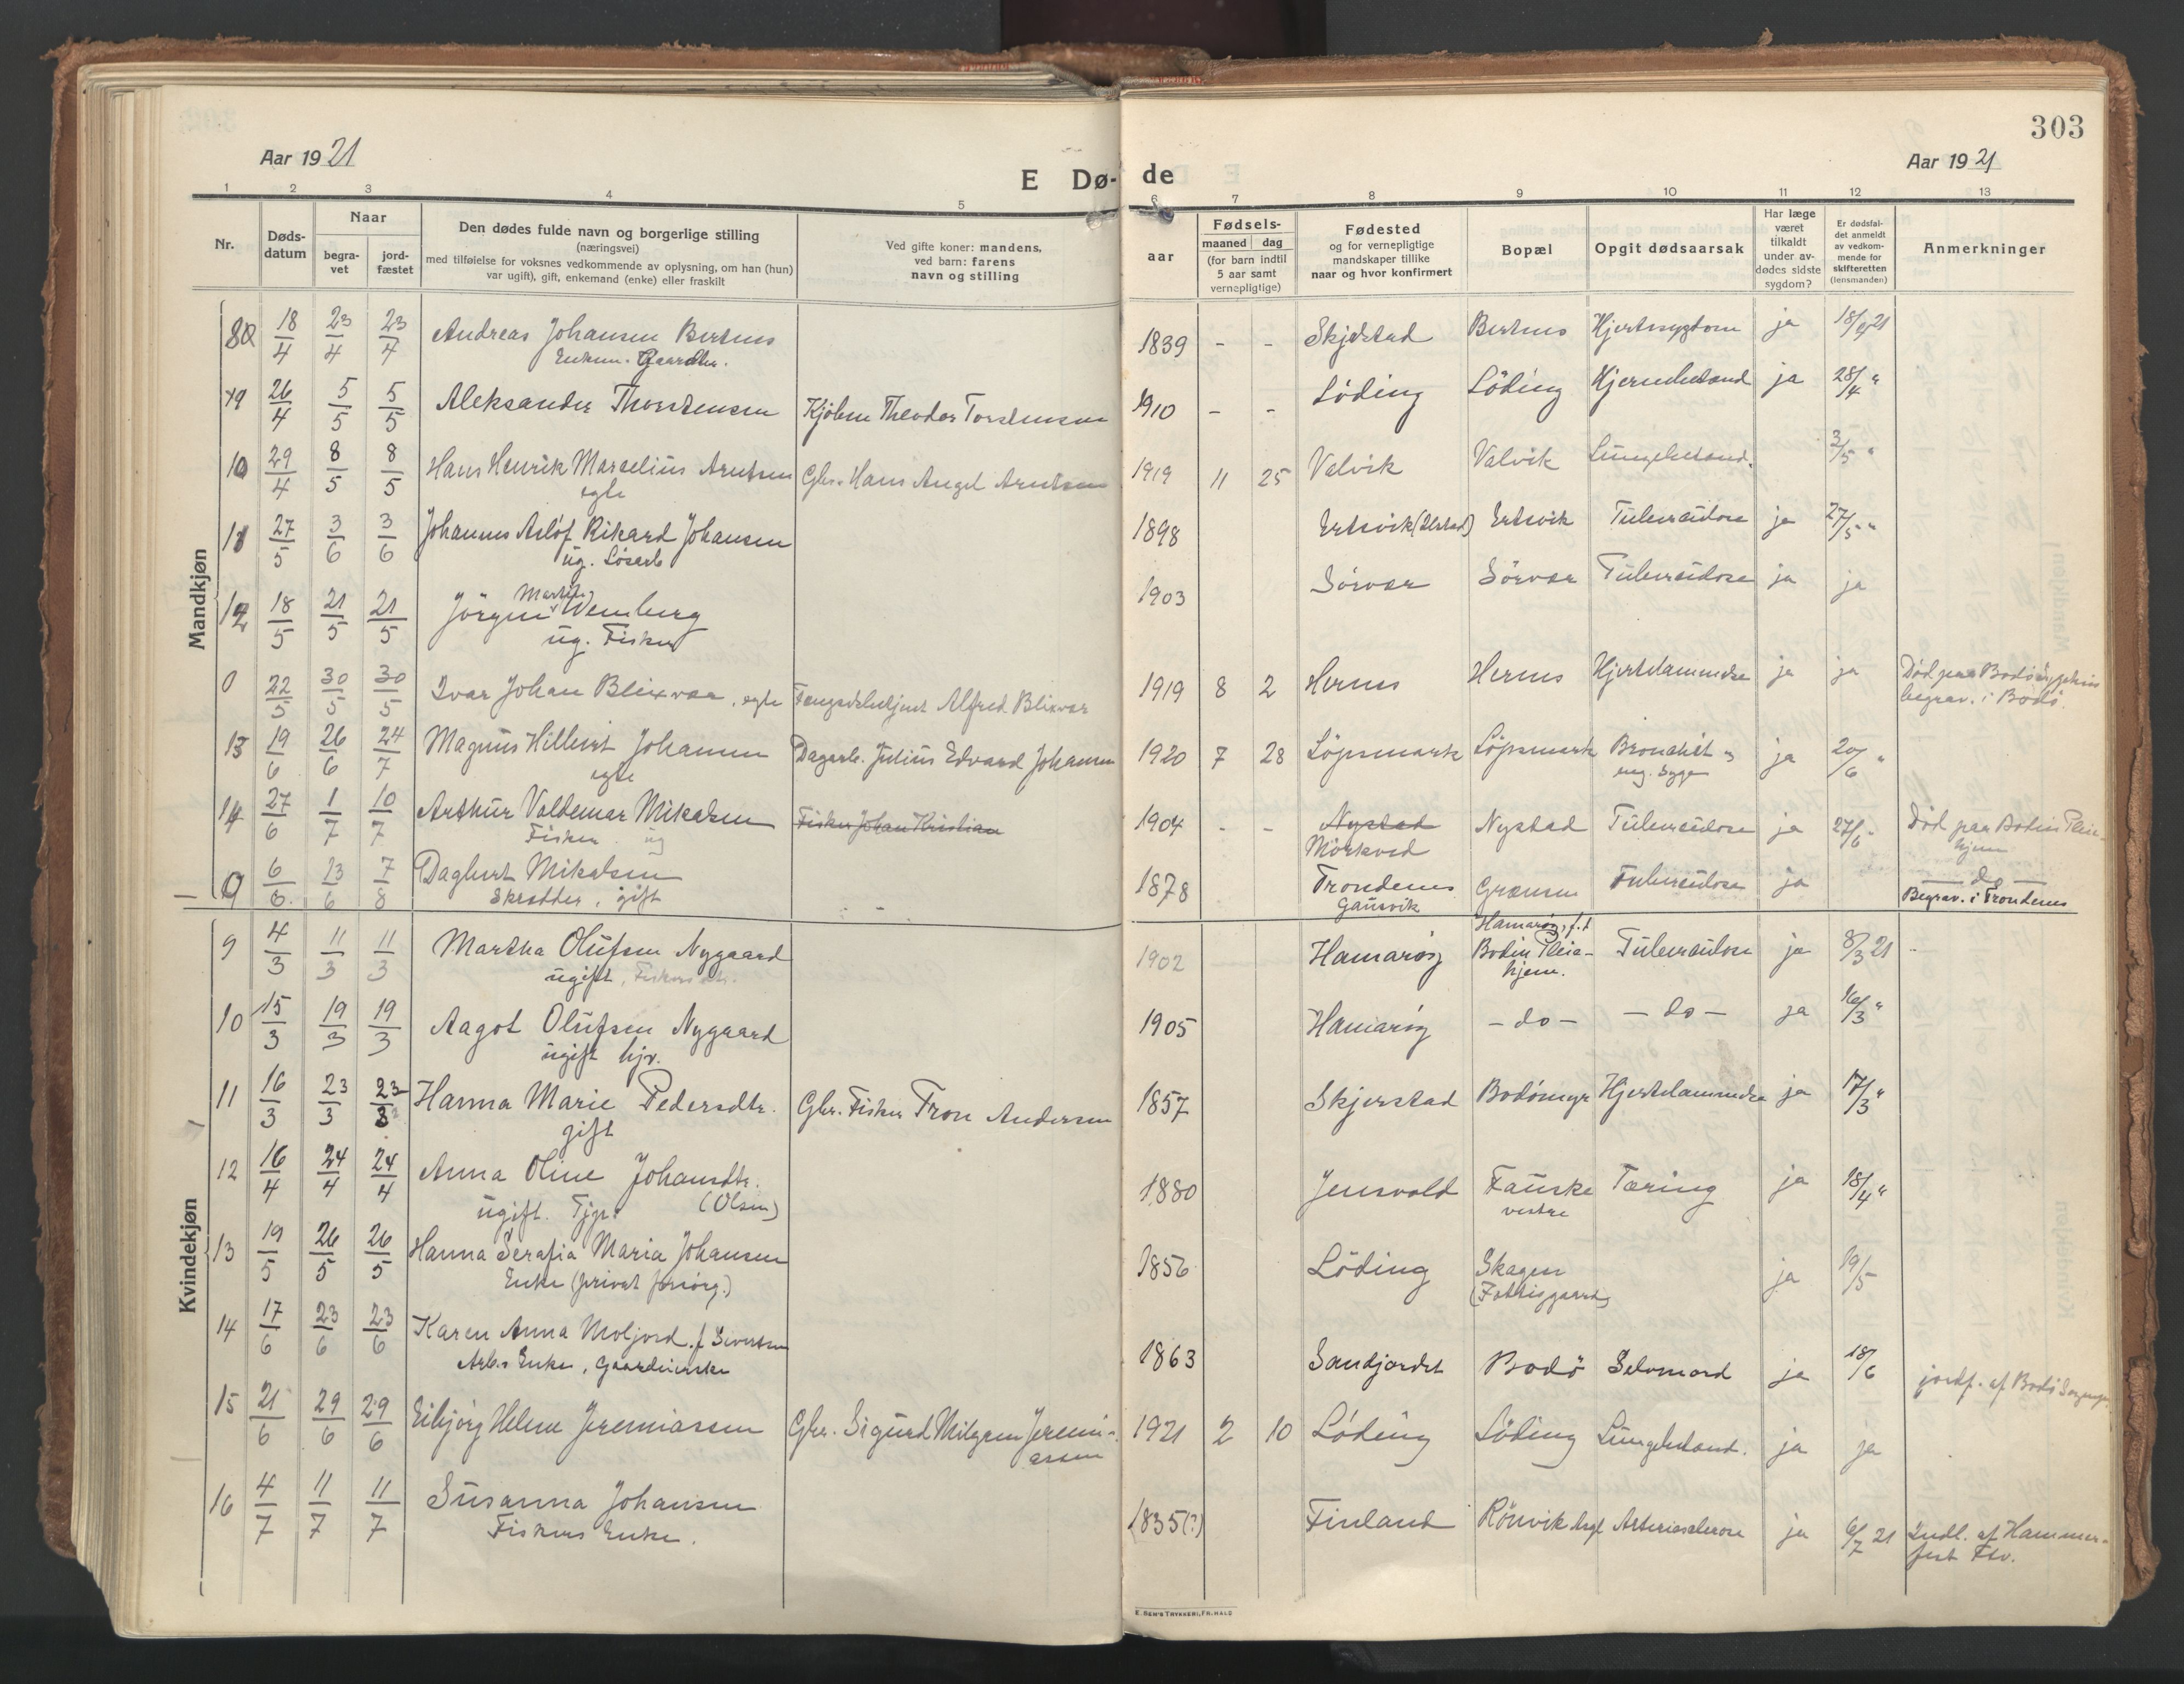 303
Aar 1921
Aar 1921
E Dø-
de
1 2 3 4 5 6 7 8 9 10 11 12 13
Nr.
Døds-
datum
Naar
begra-
vet
jord-
fæstet
Den dødes fulde navn og borgerlige stilling
(næringsvei)
med tilføielse for voksnes vedkommende av oplysning, om han (hun)
var ugift), gift, enkemand (enke) eller fraskilt
Ved gifte koner: mandens,
ved barn: farens
navn og stilling
aar
Fødsels-
maaned dag
(for barn indtil
5 aar samt
vernepligtige)
Fødested
og for vernepligtige
mandskaper tillike
naar og hvor konfirmert
Bopæl
Opgit dødsaarsak
Har læge
været
tilkaldt
under av-
dødes sidste
sygdom?
Er dødsfal-
det anmeldt
av vedkom-
mende for
skifteretten
(lensmanden)
Anmerkninger
Mandkjøn
18/4 23/4 23/4 Andreas Johansen Bertnes 1839 - - Skjerstad Bertnes Hjertesygdom ja
Enkem. Gaardbr.
26/4 5/5 5/5 Aleksander Thorstensen Kjölsen Theodor Torstensen 1910 - - Löding Löding Hjernebetænd ja 28/4 "
10 29/4 8/5 8/5 Hans Henrik Marselius Arntsen Gbr. Hans Angel Arntsen 1919 11 25 Valvik Valvik Lungebetænd. 3/5 "
egte
11 27/5 3/6 3/6 Johannes Asløf Rikard Johansen 1898 Ertsvik Ertsvik Tuberculose ja 27/5 "
ug. Løsarb
Martin
12 18/5 21/5 21/5 Jörgen Wenberg 1903 Sörvær Sörvær Tuberculose ja ja
ug. Fisker
0 22/5 30/5 30/5 Ivar Johan Blixvær, egte Fængselsbetjent Alfred Blixvær 1919 8 2 Hernes Hernes Hjertelammelse ja ja Död paa Bodö sygehus
begrav. i Bodö.
13 19/6 26/6 24/7 Magnus Hilbert Johansen Dagarb. Julius Edvard Johansen 1920 7 28 Löpsmark Löpsmark Bronchit og ja 20/6 "
egte eng. syge
14 27/6 1/7 10/7 Arthur Valdemar Mikalsen Fisker Johan Kristian 1904 - - Nystad Nystad Tuberculose ja 27/6 " Död paa Bodin Pleie-
Fisker ug Mörkved hjem
0 6/6 13/6 7/8 Dagbert Mikalsen 1878 Trondenes Grænsen Tuberculose ja — do —
Skrædder, gift Gausvik Begrav. i Trondenes
Kvindekjøn
9 4/3 11/3 11/3 Martha Olufsen Nygaard 1902 Hamaröy Hamaröy, f.t. Tuberculose ja 8/3 21
ugift, Bodin Pleie-
hjem.
10 15/3 19/3 19/3 Aagot Olufsen Nygaard 1905 Hamaröy - do - - do - ja 16/3 "
ugift hjv.
11 16/3 23/3 23/3 Hanna Marie Pedersdtr. Gbr. Fisker Tron Andersen 1857 Skjerstad Bodömyr Hjertelammelse ja 17/3 "
gift
12 16/4 24/4 24/4 Anna Oline Johansdtr. 1880 Jensvold Fauske Tæring ja 18/4 "
ugift. Tjp. (Olsen) vestre
13 19/5 26/5 26/5 Hanna Serafia Maria Johansen 1856 Löding Skagen ja 19/5
Enke (privat forsörg.) (Fattiggaard)
14 17/6 23/6 23/6 Karen Anna Moljord f. Sivertsen 1863 Sandjordet Bodö Selvmord ja 18/6 jordf. af Bodö
Arb.s Enke, Gaardeierske
15 21/6 29/6 29/6 Eibjörg Helene Jeremiassen Gbr. Sigurd Milgren Jeremi- 1921 2 10 Löding Löding Lungebetænd. ja ja
assen
16 4/7 11/7 11/7 Susanna Johansen 1835(?) Finland Rönvik Asyl Arteriosclerose ja 6/7 21 Indl. af Hammer-
Fiskers Enke. fest Fsv.
E. SEM'S TRYKKERI, FR.HALD